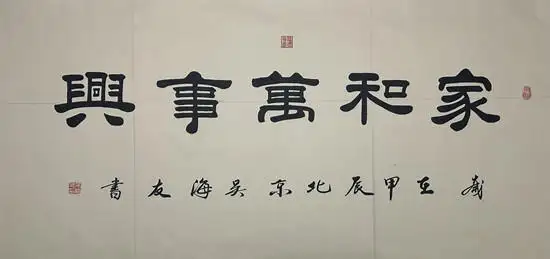 家和萬事興
歲在甲辰北京吴海友書